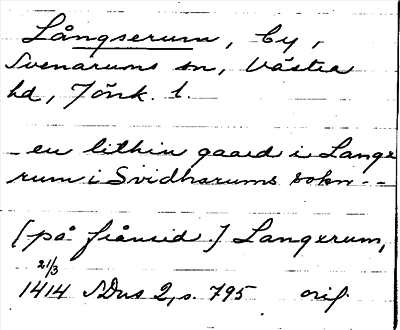 Långserum, by,
Svenarums sn, Västra
hd, Jönk. l.
_ en lithin gaard i Lange
rum i Svidharums sokn _ _
[på frånsid.] Langerum,
21/3
1414 SDns 2, s. 795 orig.